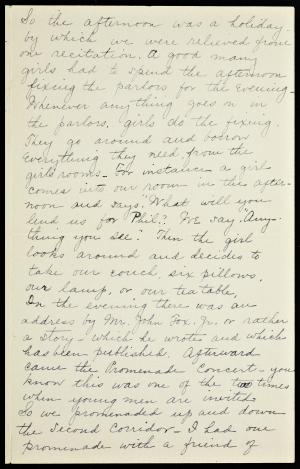 So the afternoon was a holiday-
by which we were relieved from
one recitation. A good many
girls had to spend the afternoon
fixing the parlors for the evening-
Whenever anything goes on in
the parlors, girls do the fixing.
They go around and borrow
everything they need from the
girls' rooms- For instance a girl
comes into our room in the after-
noon and says, "What will you
lend us for Phil?" We say "Any-
thing you see." Then the girl
looks around and decides to
take our couch, six pillows,
our lamp, or our tea table,
In the evening there was an
address by Mr. John Fox, Jr. or rather
a story- which he wrote and which
has been published. Afterward
came the Promenade Concert- you
know this was one of the two times
when young men are invited
So we promenaded up and down
the second corridor- I had our
promenade with a friend of